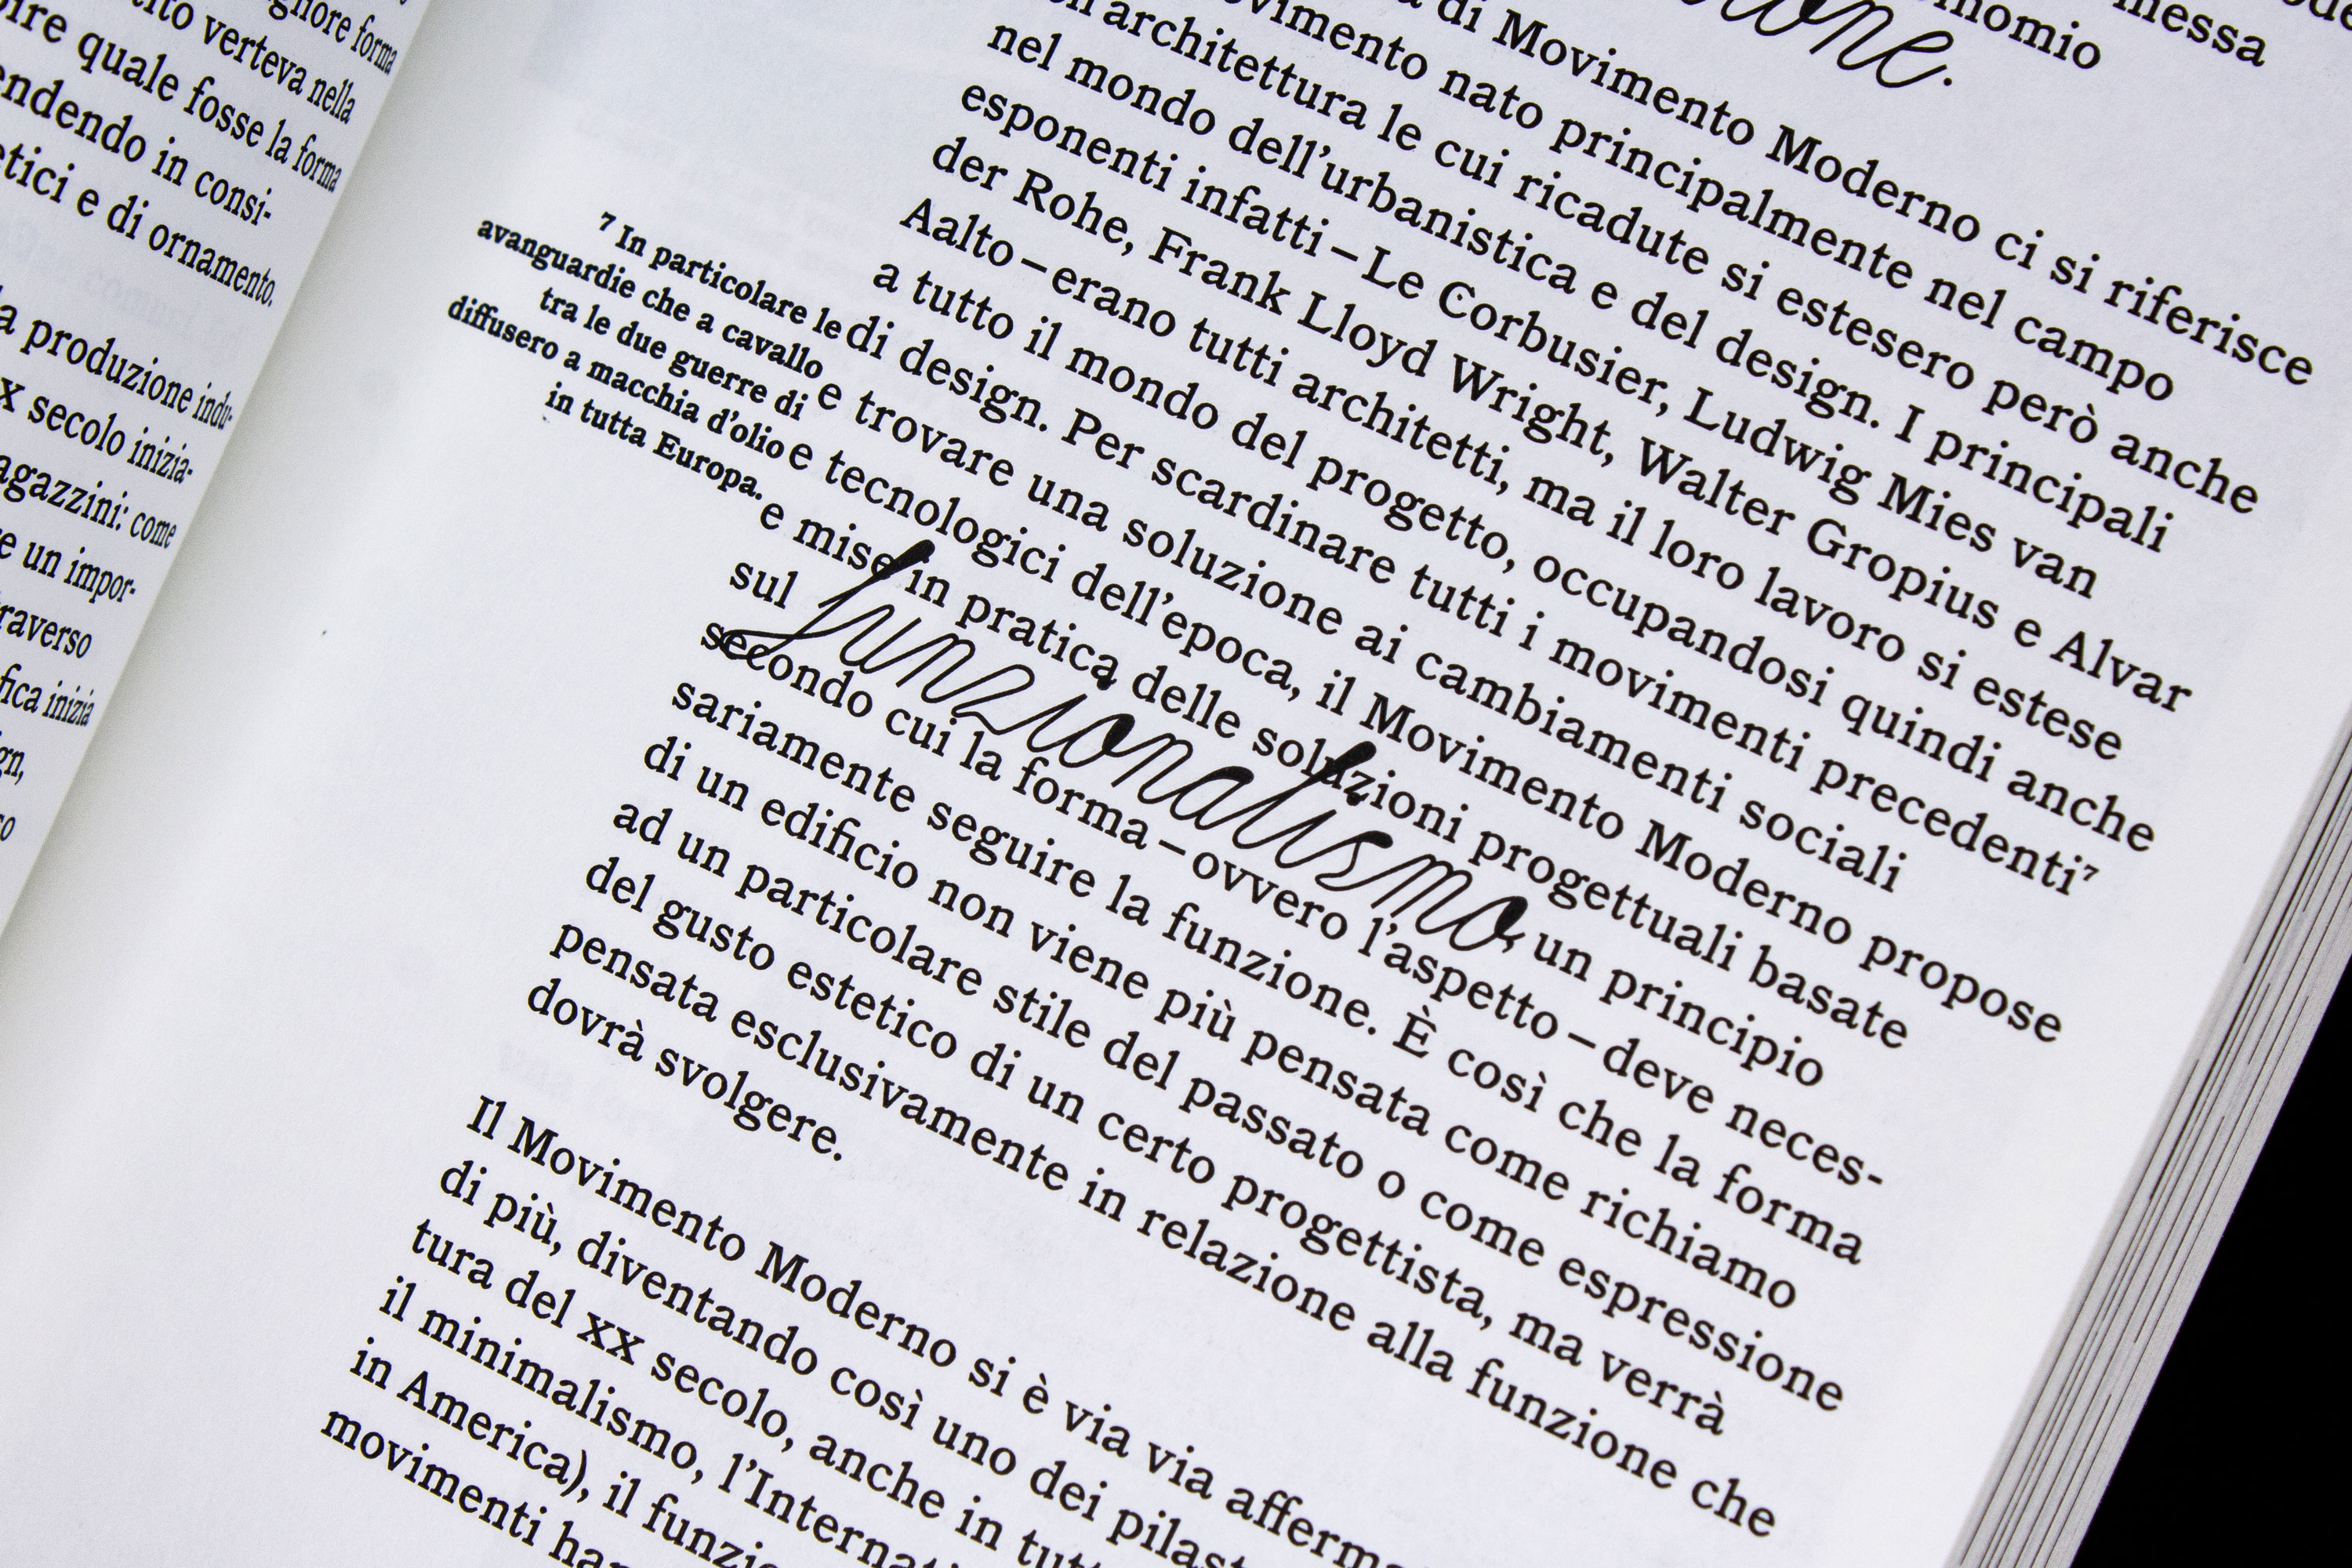 forma
verteva nella
quale fosse la forma
in consi-
e di ornamento.
produzione indu-
secolo inizia-
come
un impor-
inizia
messa
di Movimento Moderno ci si riferisce
nato principalmente nel campo
architettura le cui ricadute si estesero però anche
nel mondo dell’urbanistica e del design. I principali
esponenti infatti – Le Corbusier, Ludwig Mies van
der Rohe, Frank Lloyd Wright, Walter Gropius e Alvar
Aalto – erano tutti architetti, ma il loro lavoro si estese
a tutto il mondo del progetto, occupandosi quindi anche
di design. Per scardinare tutti i movimenti precedenti⁷
e trovare una soluzione ai cambiamenti sociali
e tecnologici dell’epoca, il Movimento Moderno propose
e mise in pratica delle soluzioni progettuali basate
sul funzionalismo, un principio
secondo cui la forma – ovvero l’aspetto – deve neces-
sariamente seguire la funzione. È così che la forma
di un edificio non viene più pensata come richiamo
ad un particolare stile del passato o come espressione
del gusto estetico di un certo progettista, ma verrà
pensata esclusivamente in relazione alla funzione che
dovrà svolgere.
7 In particolare le
avanguardie che a cavallo
tra le due guerre di
diffusero a macchia d’olio
in tutta Europa.
Il Movimento Moderno si è via via
di più, diventando così uno dei
tura del XX secolo, anche in
il minimalismo,
in America), il
movimenti